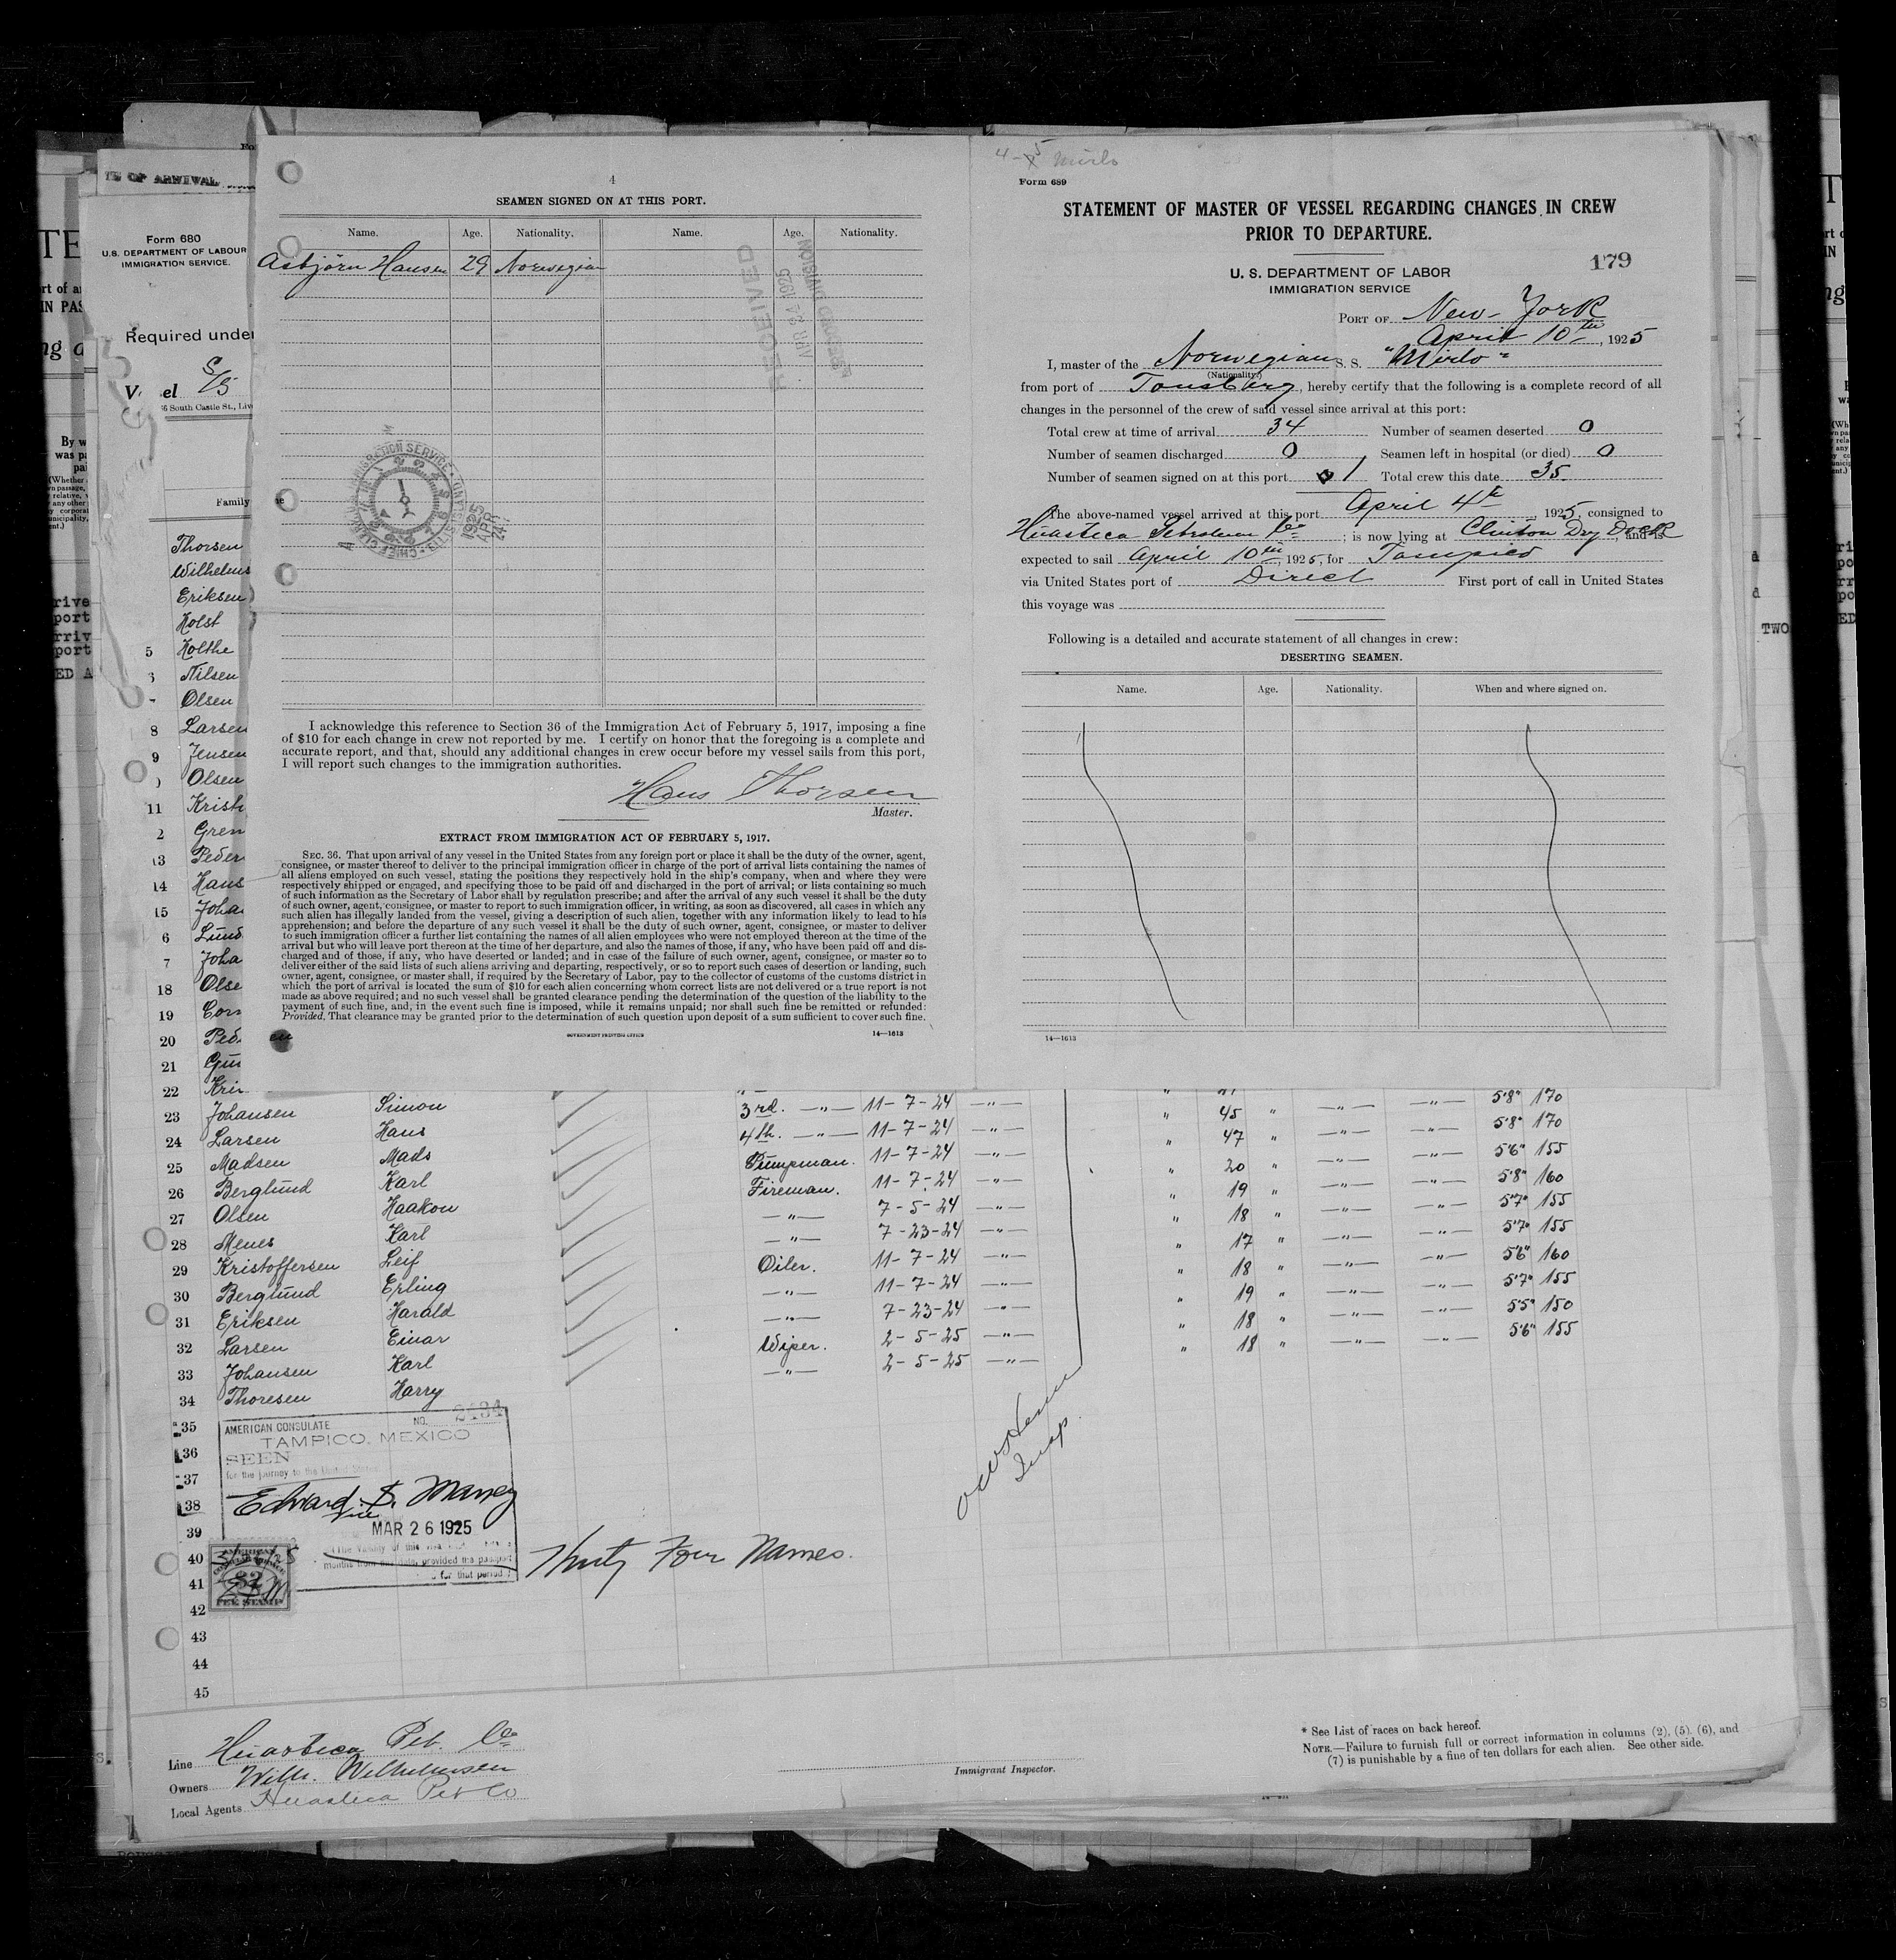 4
SEAMEN SIGNED ON AT THIS PORT.
Name. Age. Nationality. Name. Age. Nationality.
Asbjörn Hansen 29 Norwegian
RECEIVED
APR 24 1925
RECORD DIVISION
I acknowledge this reference to Section 36 of the Immigration Act of February 5, 1917, imposing a fine
of $10 for each change in crew not reported by me. I certify on honor that the foregoing is a complete and
accurate report, and that, should any additional changes in crew occur before my vessel sails from this port,
I will report such changes to the immigration authorities.
Hans Thorsen
Master.
EXTRACT FROM IMMIGRATION ACT OF FEBRUARY 5, 1917.
SEC. 36. That upon arrival of any vessel in the United States from any foreign port or place it shall be the duty of the owner, agent,
consignee, or master thereof to deliver to the principal immigration officer in charge of the port of arrival lists containing the names of
all aliens employed on such vessel, stating the positions they respectively hold in the ship's company, when and where they were
respectively shipped or engaged, and specifying those to be paid off and discharged in the port of arrival; or lists containing so much
of such information as the Secretary of Labor shall by regulation prescribe; and after the arrival of any such vessel it shall be the duty
of such owner, agent, consignee, or master to report to such immigration officer, in writing, as soon as discovered, all cases in which any
such alien has illegally landed from the vessel, giving a description of such alien, together with any information likely to lead to his
apprehension; and before the departure of any such vessel it shall be the duty of such owner, agent, consignee, or master to deliver
to such immigration officer a further list containing the names of all alien employees who were not employed thereon at the time of the
arrival but who will leave port thereon at the time of her departure, and also the names of those, if any, who have been paid off and dis-
charged and of those, if any, who have deserted or landed; and in case of the failure of such owner, agent, consignee, or master so to
deliver either of the said lists of such aliens arriving and departing, respectively, or so to report such cases of desertion or landing, such
owner, agent, consignee, or master shall, if required by the Secretary of Labor, pay to the collector of customs of the customs district in
which the port of arrival is located the sum of $10 for each alien concerning whom correct lists are not delivered or a true report is not
made as above required; and no such vessel shall be granted clearance pending the determination of the question of the liability to the
payment of such fine, and, in the event such fine is imposed, while it remains unpaid; nor shall such fine be remitted or refunded:
Provided, That clearance may be granted prior to the determination of such question upon deposit of a sum sufficient to cover such fine.
GOVERNMENT PRINTING OFFICE 14—1613
4-5 Mirlo
Form 689
STATEMENT OF MASTER OF VESSEL REGARDING CHANGES IN CREW
PRIOR TO DEPARTURE.
179
U. S. DEPARTMENT OF LABOR
IMMIGRATION SERVICE
PORT OF New-York
April 10th, 1925
I, master of the Norwegian S. S. "Mirlo"
(Nationality.)
from port of Tonsberg, hereby certify that the following is a complete record of all
changes in the personnel of the crew of said vessel since arrival at this port:
Total crew at time of arrival 34 Number of seamen deserted 0
Number of seamen discharged 0 Seamen left in hospital (or died) 0
Number of seamen signed on at this port 1 Total crew this date 35.
The above-named vessel arrived at this port April 4th, 1925, consigned to
Huasteca Petroleum Co; is now lying at Clinton Dry Dock, and is
expected to sail April 10th, 1925, for Tampico
via United States port of Direct First port of call in United States
this voyage was
Following is a detailed and accurate statement of all changes in crew:
DESERTING SEAMEN.
Name. Age. Nationality. When and where signed on.
14—1613
Form 680
U.S. DEPARTMENT OF LABOUR
IMMIGRATION SERVICE.
Required under
Vessel S/S
Family
Thorsen
Wilhelms
Eriksen
Holst
5 Holthe
Nilsen
Olsen
8 Larsen
9 Jensen
Olsen
11 Krist
2 Gren
13 Peder
14 Hans
15 Joha
6 Lund
7 Joha
18 Olse
19 Corn
20 Ped
21 Gun
22 Kri
23 Johansen Simon 3rd. —"— 11-7-24 —"— " 45 " —"— —"— 5'8" 170
24 Larsen Hans 4th. —"— 11-7-24 —"— " 47 " —"— —"— 5'8" 170
25 Madsen Mads Pumpman. 11-7-24 —"— " 20 " —"— —"— 5'6" 155
26 Berglund Karl Fireman. 11-7-24 —"— " 19 " —"— —"— 5'8" 160
27 Olsen Haakon —"— 7-5-24 —"— " 18 " —"— —"— 5'7" 155
28 Menes Karl —"— 7-23-24 —"— " 17 " —"— —"— 5'7" 155
29 Kristoffersen Leif Oiler. 11-7-24 —"— " 18 " —"— —"— 5'6" 160
30 Berglund Erling —"— 11-7-24 —"— " 19 " —"— —"— 5'7" 155
31 Eriksen Harald —"— 7-23-24 —"— " 18 " —"— —"— 5'5" 150
32 Larsen Einar Wiper. 2-5-25 —"— " 18 " —"— —"— 5'6" 155
33 Johansen Karl —"— 2-5-25 —"—
34 Thoresen Harry
35
36
37
38
39
40
41
42
43
44
45
AMERICAN CONSULATE NO. 2484
TAMPICO, MEXICO
SEEN
for the journey to the United States
Edward S. Maney
Vice
MAR 26 1925
Thirty Four Names.
Insp.
Line Huasteca Pet. Co
Owners Wilh. Wilhelmsen
Local Agents Huasteca Pet Co
Immigrant Inspector.
* See List of races on back hereof.
NOTE.—Failure to furnish full or correct information in columns (2), (5), (6), and
(7) is punishable by a fine of ten dollars for each alien. See other side.